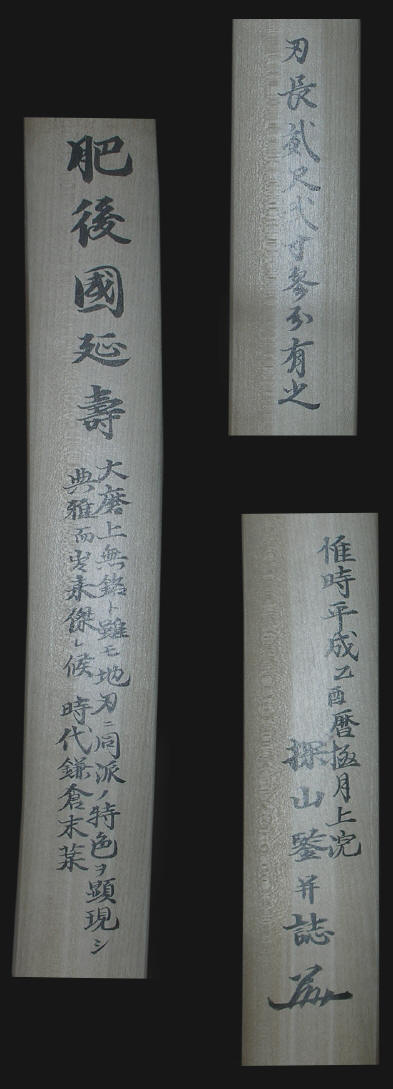 肥後國延壽
大磨上無銘ト雖モ地刃ニ同派ノ特色ヲ顕現シ
典雅而出来傑レ候 時代鎌倉末葉
刃長貳尺弐寸参分有之
惟時平成乙酉暦極月上浣
探山鑒并誌